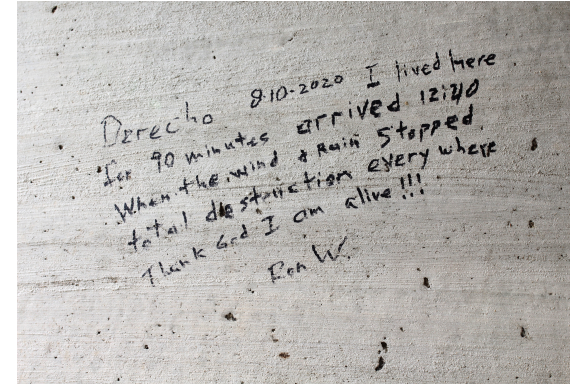 Derecho 8-10-2020 I lived here
for 90 minutes arrived 12:40
When the wind & Rain Stopped
total destruction every where
Thank God I am alive!!!
Ron W.